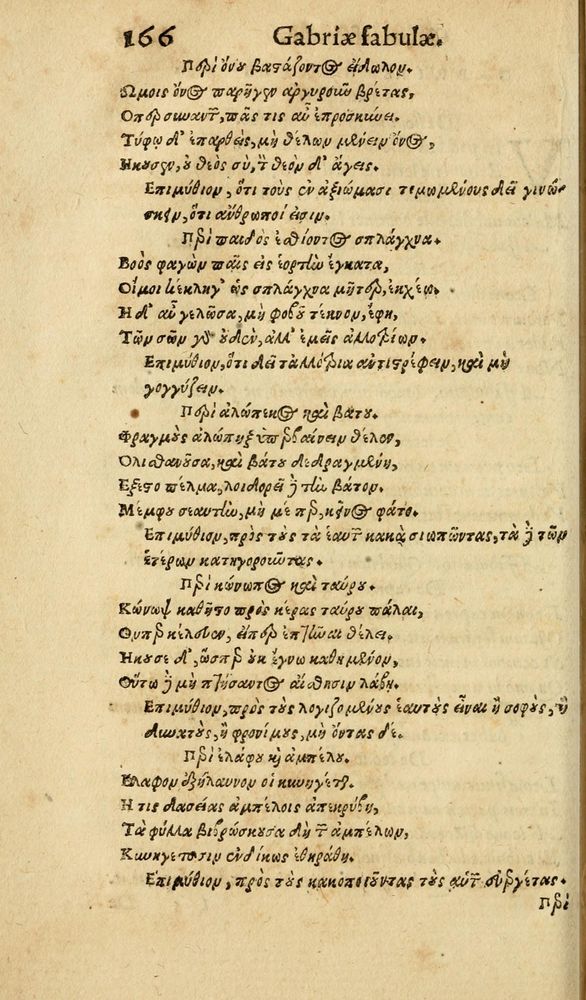 166 Gabriæ fabulæ.
Περὶ ὄνου βαστάζοντος εἴδωλον.
Ωμοις ὄνος παρῆγεν ἀργυροῦν βρέτας,
Οπερ συναντῶν, πᾶς τις αὖ ἐπροσκύνει.
Τύφῳ δ' ἐπαρθεὶς, μὴ θέλων μένειν ὄνος,
Ηκουσεν, οὐ θεὸς σὺ, τὸν θεὸν δ' ἄγεις.
Επιμύθιον, ὅτι τοὺς ἐν ἀξιώμασι τιμωμένους δεῖ γινώ-
σκειν, ὅτι ἄνθρωποί εἰσιν.
Περὶ παιδὸς ἐσθίοντος σπλάγχνα.
Βοὸς φαγὼν παῖς εἰς ἑορτὴν ἔγκατα,
Οἴμοι κέκληγ' ὡς σπλάγχνα μῆτερ, ἐκχέω.
Η δ' αὖ γελῶσα, μὴ φοβοῦ τέκνον, ἔφη,
Τῶν σῶν γὰρ οὐδὲν, ἀλλ' ἐμεῖς ἀλλοτρίων.
Επιμύθιον, ὅτι δεῖ τἀλλότρια ἀντιστρέφειν, καὶ μὴ
γογγύζειν.
Περὶ ἀλώπεκος καὶ βάτου.
Φραγμοὺς ἀλώπηξ ὑπερβαίνειν θέλων,
Ὀλισθανοῦσα, καὶ βάτου δεδραγμένη,
Εξετο πέλμα, λοιδορεῖ δὲ τὴν βάτον.
Μέμφου σεαυτὴν, μὴ με περ, κᾀκεῖνος φάτο.
Επιμύθιον, πρὸς τοὺς τὰ ἑαυτῶν κακὰ σιωπῶντας, τὰ δὲ τῶν
ἑτέρων κατηγοροῦντας.
Περὶ κώνωπος καὶ ταύρου.
Κώνωψ καθῆστο πρὸς κέρας ταύρου πάλαι,
Ηκουσε δ', ὥσπερ οὐκ ἔγνω καθήμενον,
Οὕτω δὲ μὴ πτήσαντος αἴσθησιν λάβῃ.
Επιμύθιον, πρὸς τοὺς λογιζομένους ἑαυτοὺς εἶναι ἢ σοφοὺς, ἢ
δυνατοὺς, ἢ φρονίμους, μὴ ὄντας δέ.
Περὶ ἐλάφου καὶ ἀμπέλου.
Ελαφον ἐξήλαυνον οἱ κυνηγέται.
Η τις δασείας ἀμπέλοις ἀπεκρύβη,
Τὰ φύλλα βιβρώσκουσα δὴ τῶν ἀμπέλων,
Κυνηγέταισιν ἐνδίκως ἐθηράθη.
Επιμύθιον, πρὸς τοὺς κακοποιοῦντας τοὺς αὐτῶν εὐεργέτας.
Περὶ